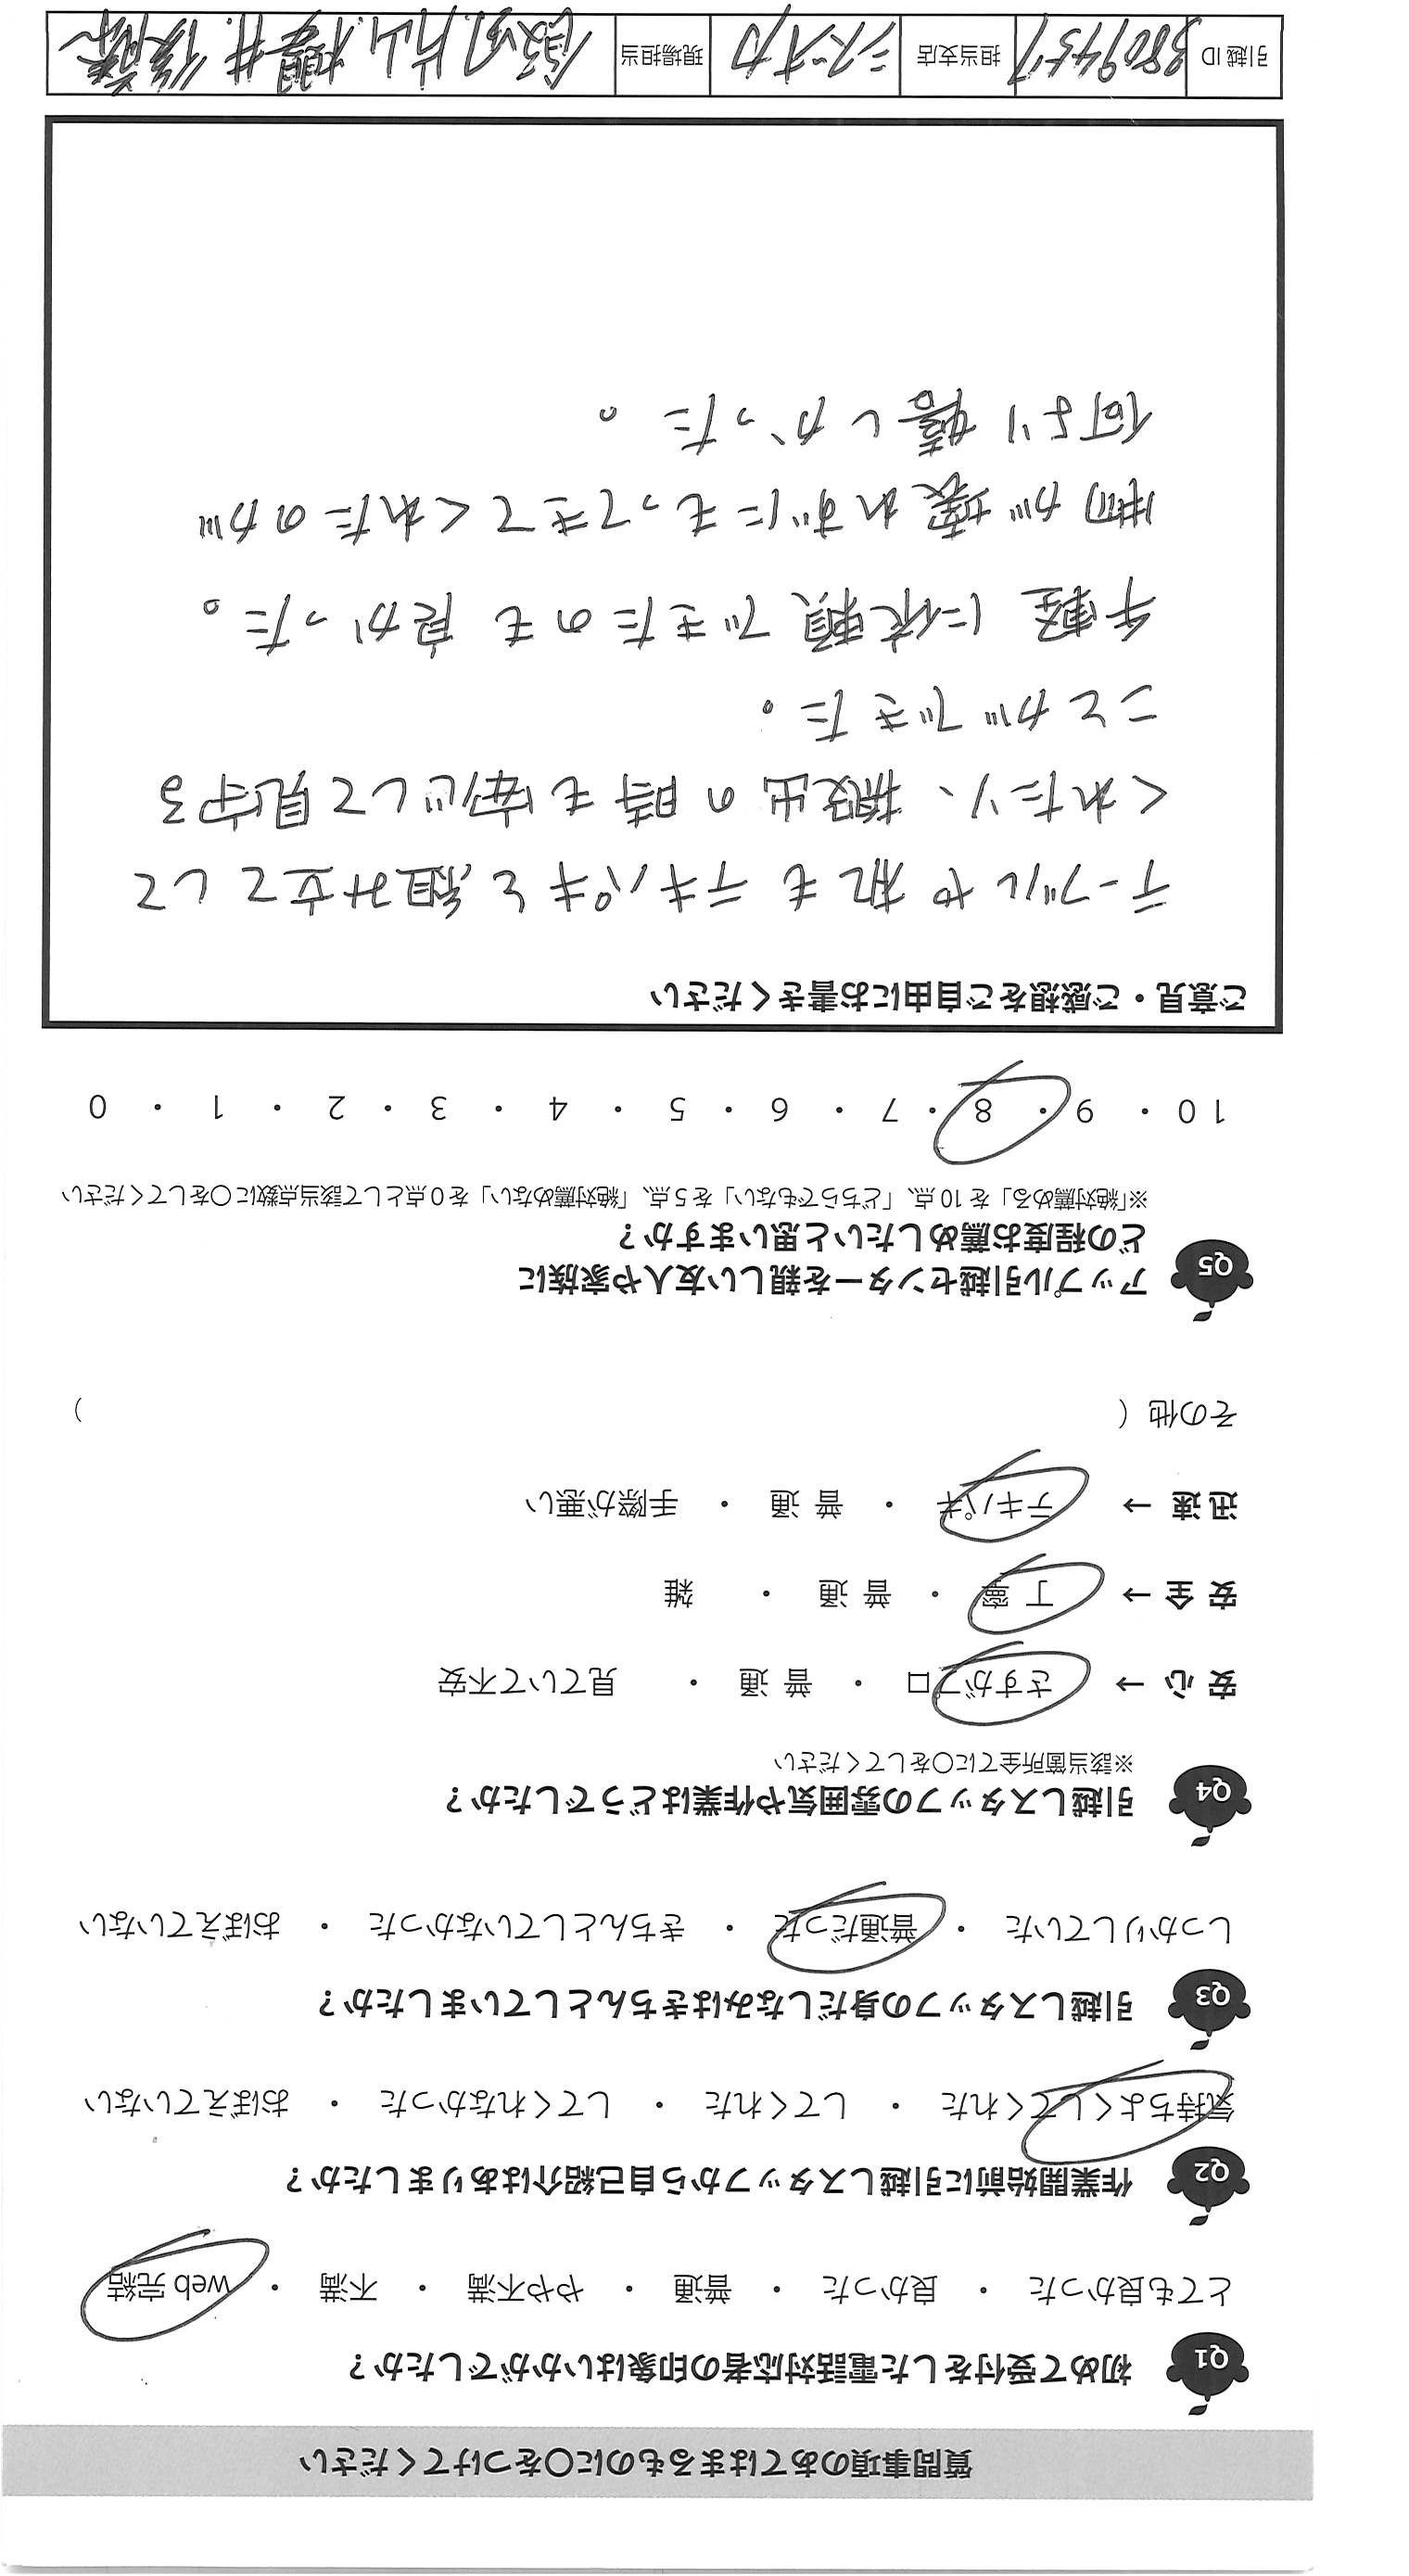 質問事項のあてはまるものに○をつけてください
Q1 初めて受付をした電話対応者の印象はいかがでしたか？
とても良かった ・ 良かった ・ 普通 ・ やや不満 ・ 不満 ・ web 完結
Q2 作業開始前に引越しスタッフから自己紹介はありましたか？
気持ちよくしてくれた ・ してくれた ・ してくれなかった ・ おぼえていない
Q3 引越しスタッフの身だしなみはきちんとしていましたか？
しっかりしていた ・ 普通だった ・ きちんとしていなかった ・ おぼえていない
Q4 引越しスタッフの雰囲気や作業はどうでしたか？
※該当箇所全てに○をしてください
安 心 → さすがプロ ・ 普 通 ・ 見ていて不安
安 全 → 丁 寧 ・ 普 通 ・ 雑
迅 速 → テキパキ ・ 普 通 ・ 手際が悪い
その他 ( )
Q5 アップル引越センターを親しい友人や家族に
どの程度お薦めしたいと思いますか？
※「絶対薦める」を 10 点、「どちらでもない」を 5 点、「絶対薦めない」を 0 点として該当点数に○をしてください
10 ・ 9 ・ 8 ・ 7 ・ 6 ・ 5 ・ 4 ・ 3 ・ 2 ・ 1 ・ 0
ご意見・ご感想をご自由にお書きください
テーブルや机もテキパキと組み立てして
くれたり、搬出の時も安心して見守る
ことができた。
手軽に依頼できたのも良かった。
物が壊れずにもってきてくれたのが
何より嬉しかった。
引越 ID 3809457 担当支店 シズオカ 現場担当 片山. 櫻井. 後藤